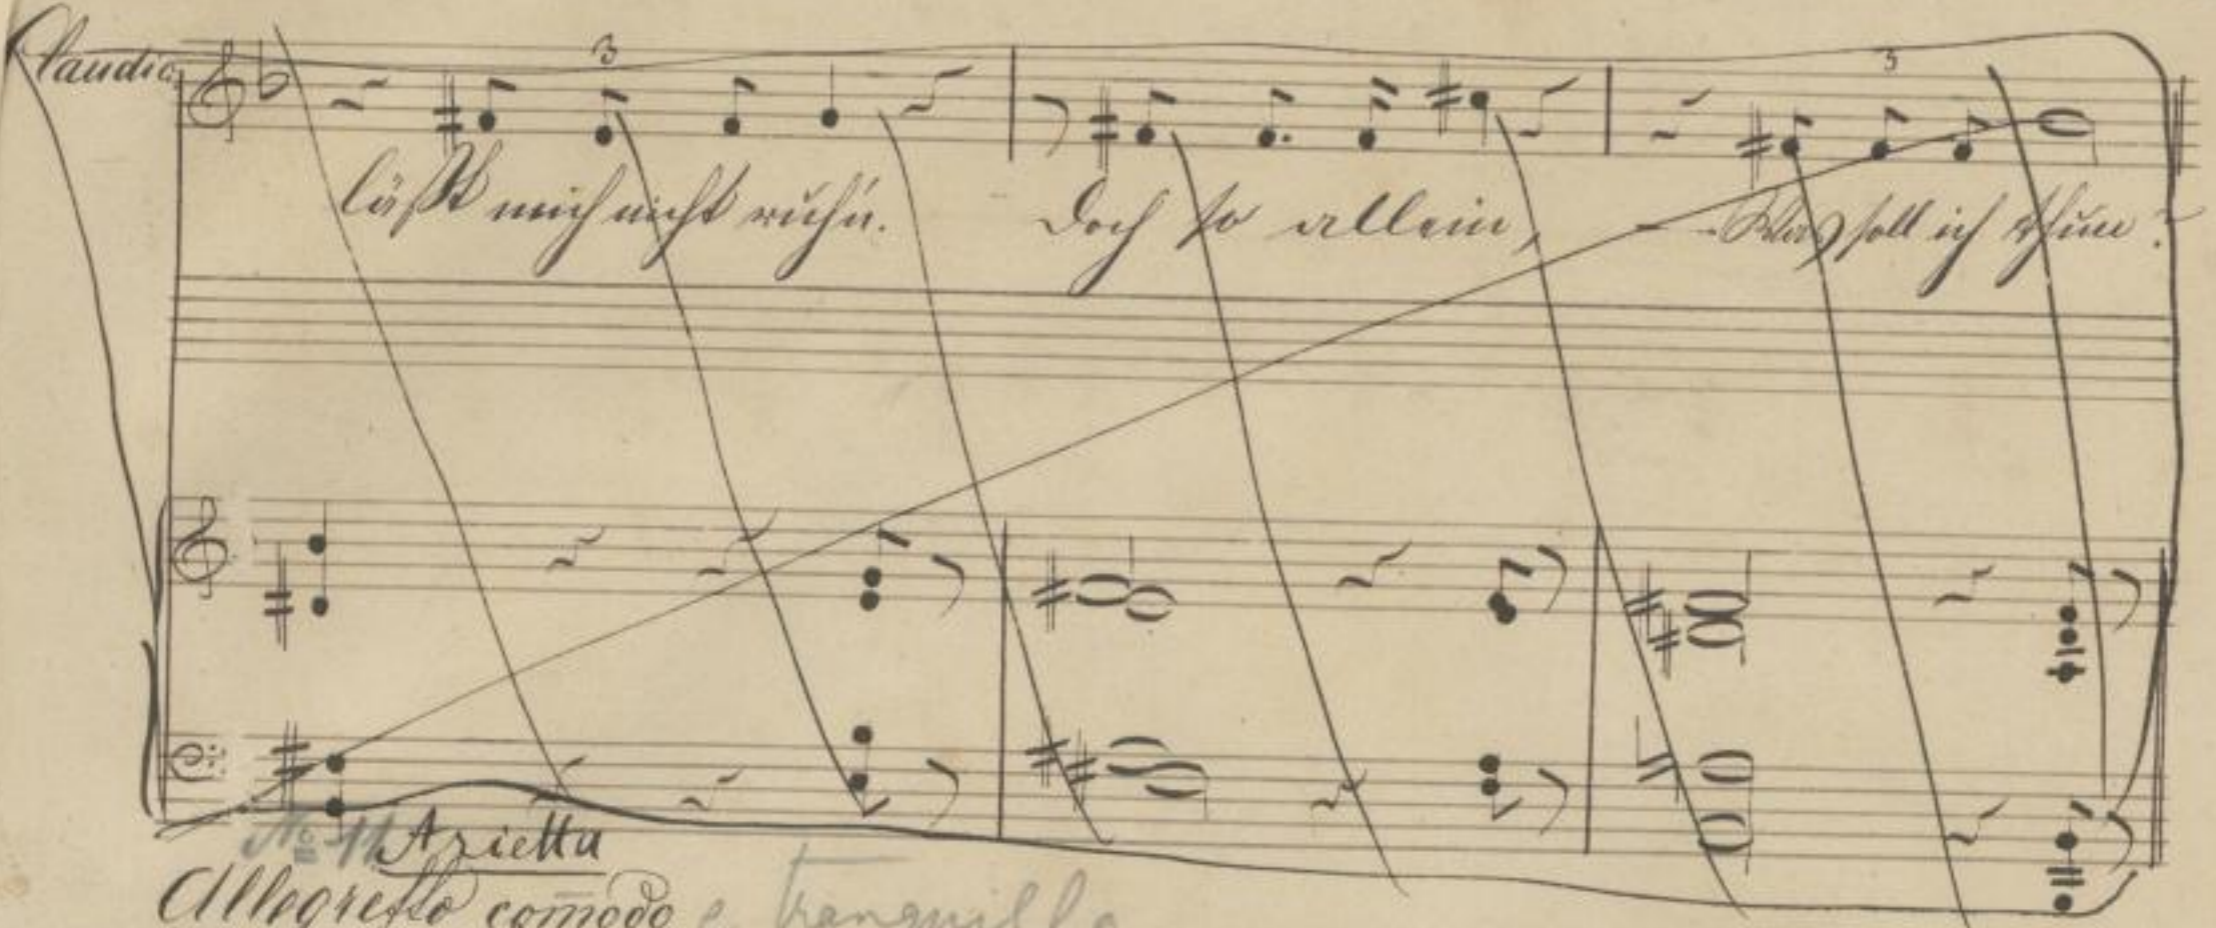 Claudia
3
3
läßt mich nicht ruh'n. Doch so allein, – Was soll ich thun?
No 11 Arietta
Allegretto comodo e tranquillo